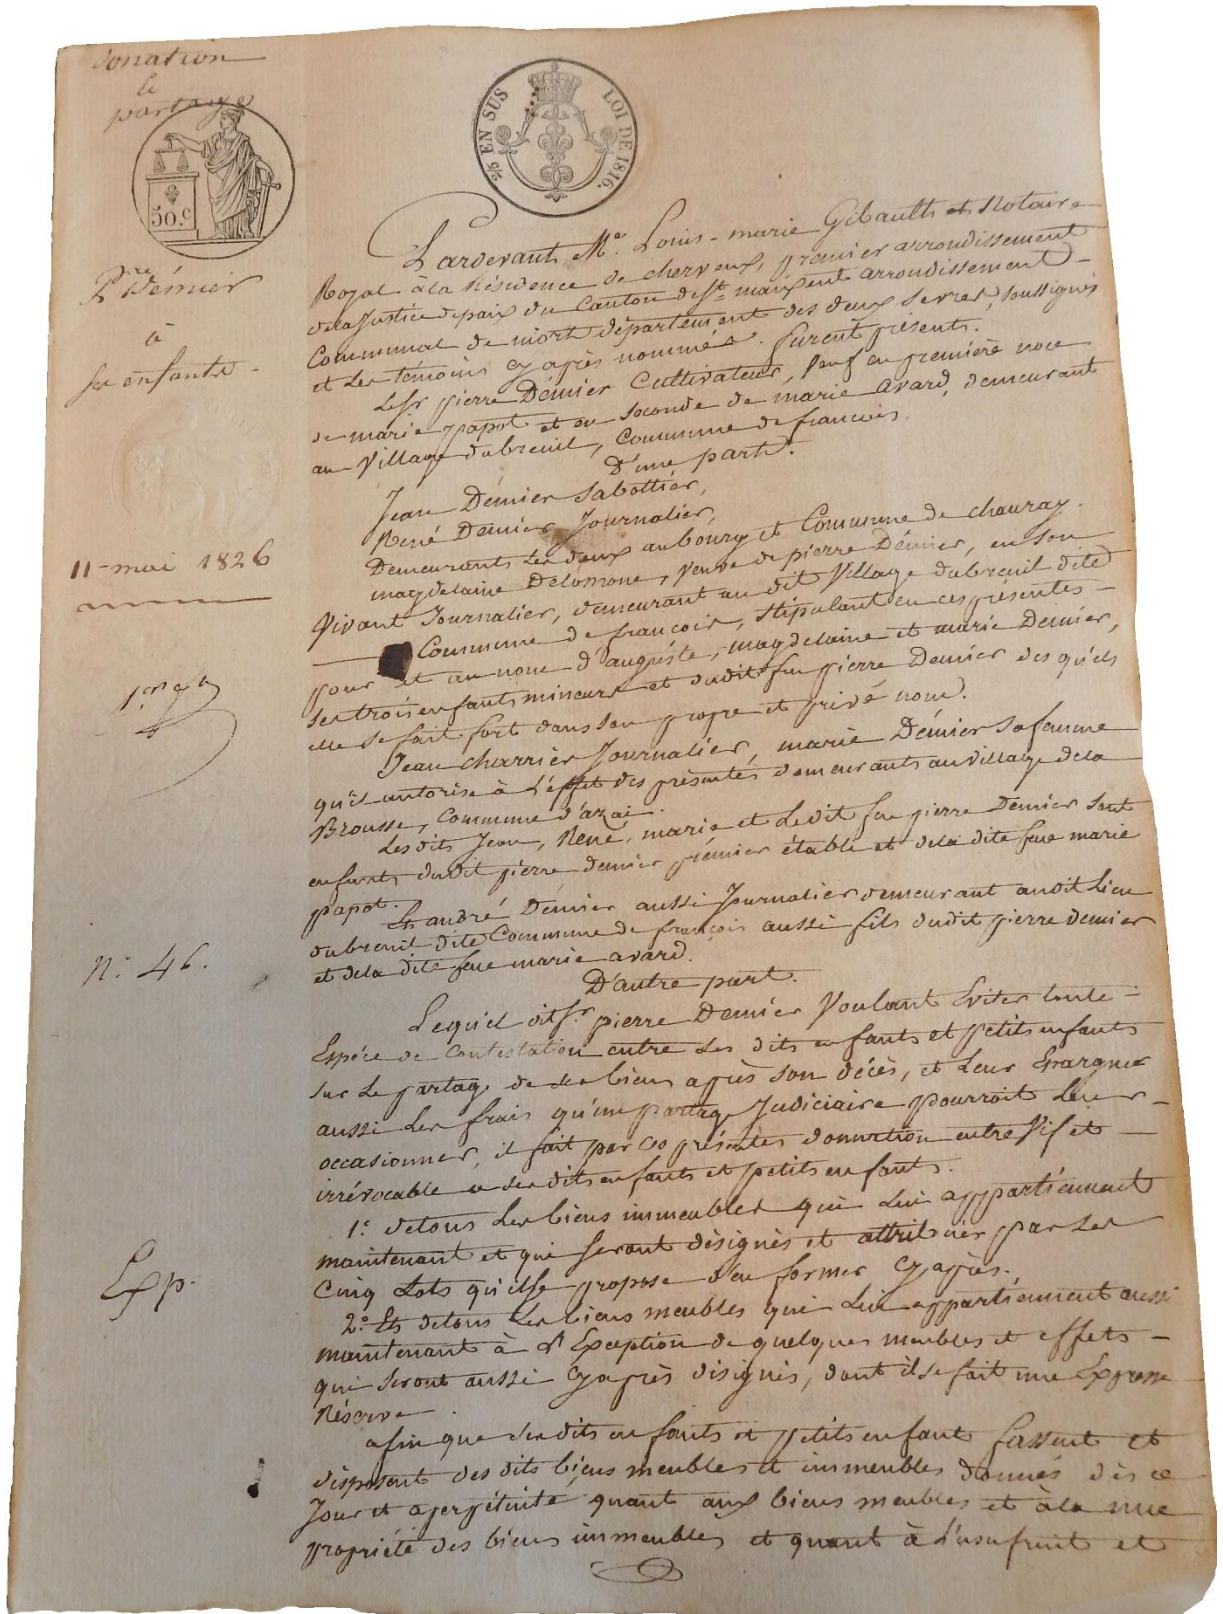 Donation
le
partage
2/5 EN SUS LOI DE 1816.
50.c
Pre Démier
à
ses enfants
11 - mai 1826
N.° 46.
Exp.
Pardevant Me. Louis-marie Gibault et Notaire
Royal à la Résidence de cherveux, premier arrondissement
de la Justice de paix du Canton de St. maixent arrondissement -
Communal de niort département des deux Sevres, soussignés
et les temoins cy après nommés. furent présents.
Le Sr pierre Démier Cultivateur, Veuf en première noce
de marie papot et en seconde de marie avard, demeurant
au Village dubreuil, Commune de francois.
D'une part.
Jean Démier Sabottier,
René Démier Journalier,
Demeurants les deux au bourg et Commune de chauray.
magdelaine Delomone, Veuve de pierre Démier, en son
Vivant Journalier, demeurant au dit Village dubreuil dite
Commune de françois, stipulant en ces présentes -
pour et au nom d'auguste, magdelaine et marie Démier,
ses trois enfants mineurs et dudit feu pierre Demier des quels
elle se fait fort dans son propre et privé nom.
Jean charrier Journalier, marie Démier sa femme
qu'il autorise à l'effet des présentes demeurants au village de la
Brousse, Commune d'azai.
Les dits Jean, René, marie et Ledit feu pierre Demier sont
enfants dudit pierre demier prémier établi et de la dite feue marie
papot.
Et andré Démier aussi Journalier demeurant audit Lieu
dubreuil dite Commune de françois aussi fils dudit pierre demier
et de la dite feue marie avard.
D'autre part.
Lequel dit Sr. pierre Demier Voulant Eviter toute -
Espéce de Contestation entre ses dits enfants et petits enfants
sur Le partage de ses biens après son décès, et leur Epargner
aussi les frais qu'un partage Judiciaire pourroit leur -
occasionner, il fait par ces présentes donnation entre Vif et -
irrévocable a ses dits enfants et petits enfants.
1.° de tous les biens immeubles qui Lui appartiennent
maintenant et qui seront désignés et attribuer par les
Cinq Lots qu'il se propose d'en former cy après.
2.° Et de tous les biens meubles qui Lui appartiennent aussi
maintenant à l'Exception de quelques meubles et effets -
qui seront aussi cy après désignés, dont il se fait une Expresse
Réserve.
afin que ses dits enfants et petits enfants fassent et
disposent des dits biens meubles et immeubles donnés dès ce
Jour et a perpétuité, quant aux biens meubles et à la nue
propriété des biens immeubles et quant à L'usufruit et